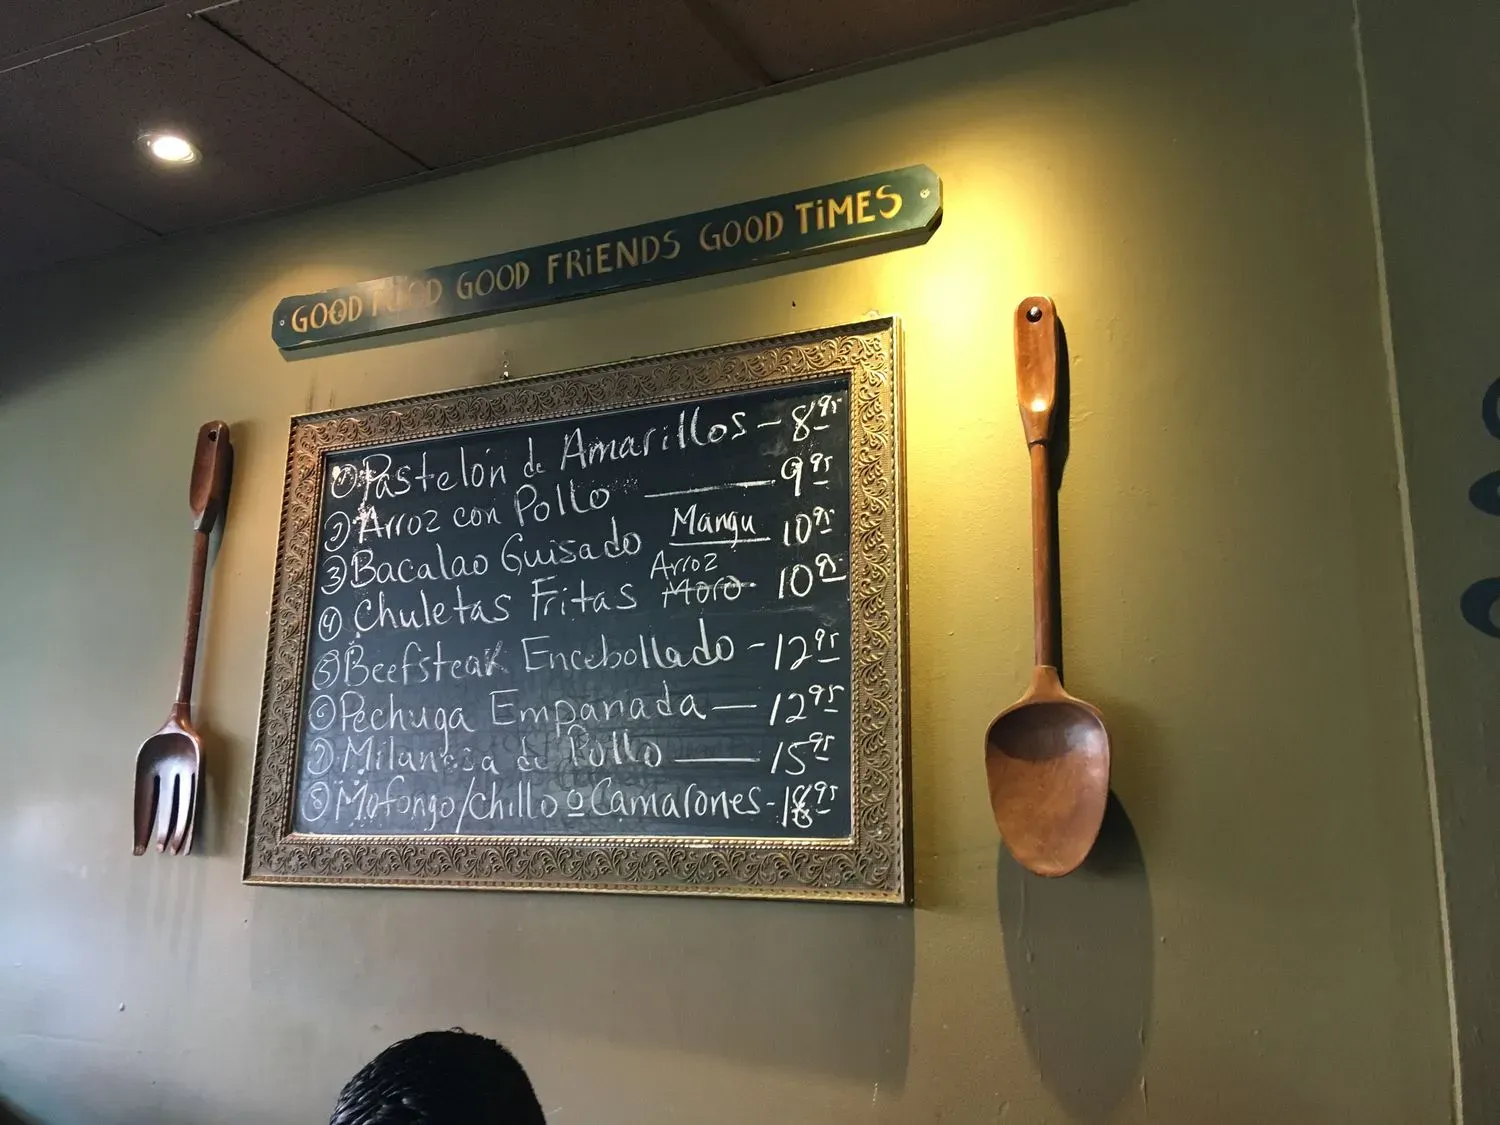 GOOD FOOD GOOD FRiENDS GOOD TiMES
① Pastelón de Amarillos - 8.95
② Arroz con Pollo 9.95
③ Bacalao Guisado Mangu 10.95
④ Chuletas Fritas Arroz Moro 10.95
⑤ Beefsteak Encebollado - 12.95
⑥ Pechuga Empanada - 12.95
⑦ Milanesa de Pollo 15.95
⑧ Mofongo/chillo o Camarones - 18.95